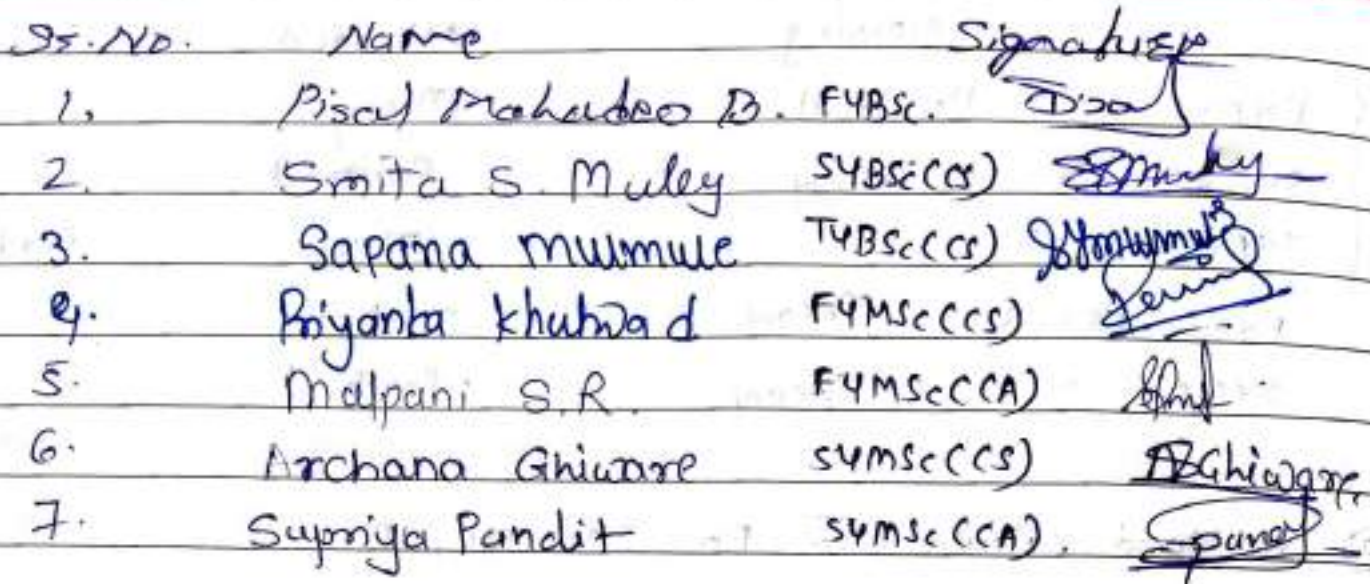 Sr. No. Name Signature
1. Pisal Mahadeo B. FYBSc.
2. Smita S. Muley SYBSc(CS) SSMuley
3. Sapana Mulmule TYBSc(CS)
4. Priyanka Khutwad FYMSc(CS)
5. Malpani S.R. FYMSc(CA)
6. Archana Ghiware SYMSc(CS) ABGhiware
7. Supriya Pandit SYMSc(CA).